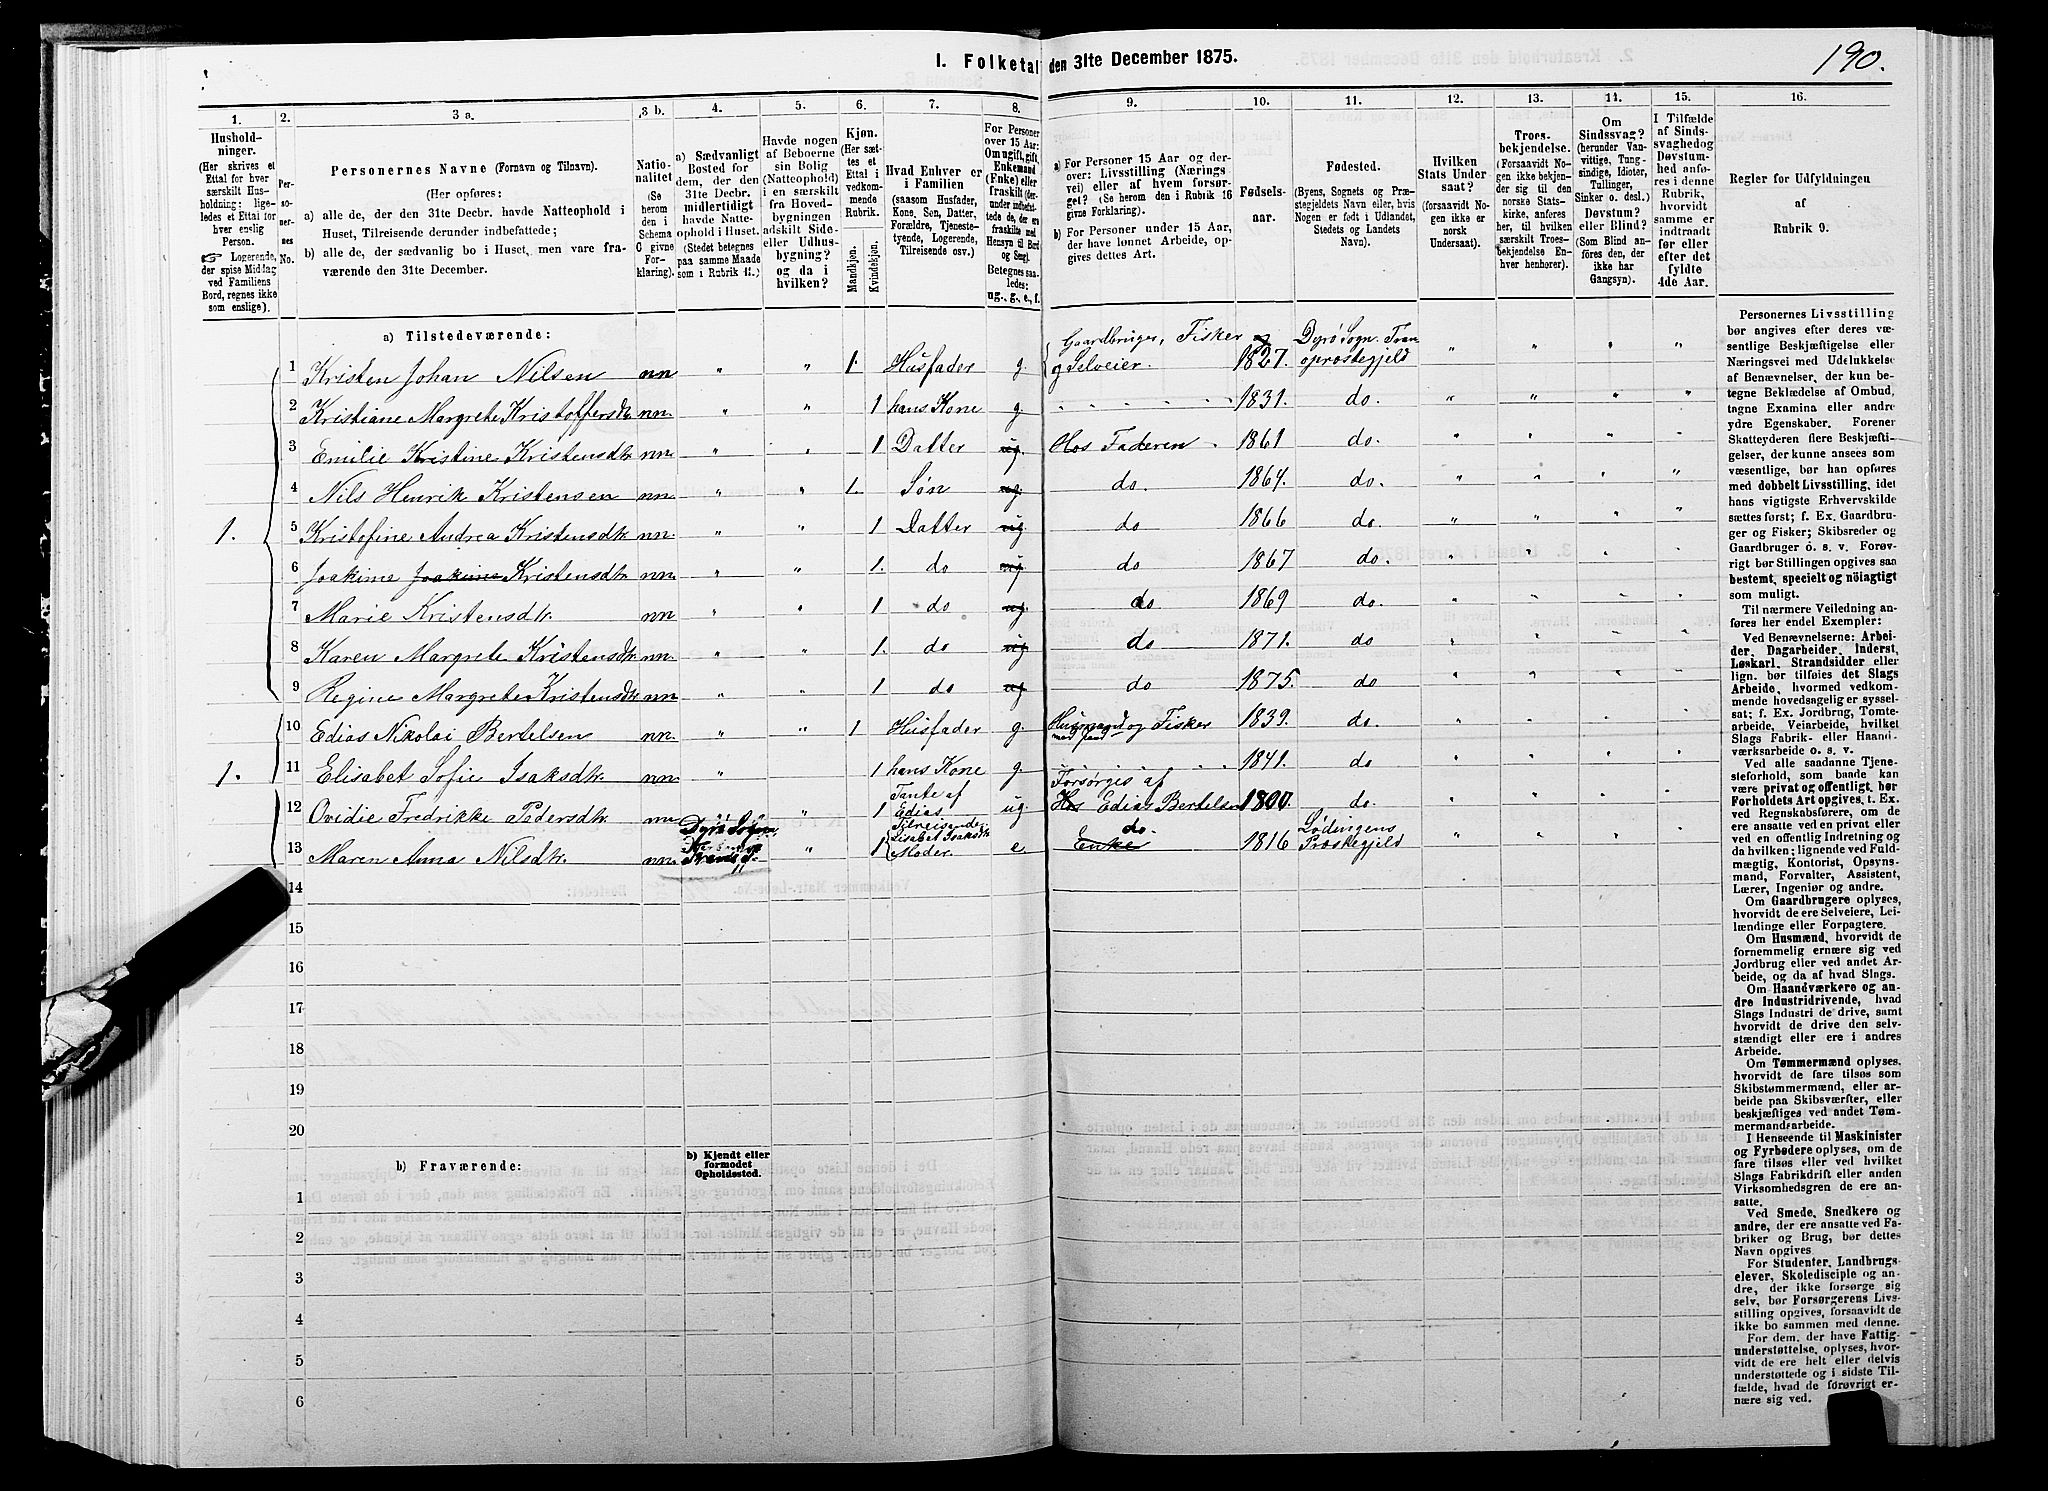 190.
I. Folketal den 31te December 1875.
1. 2. 3 a. 3 b. 4. 5. 6. 7. 8. 9. 10. 11. 12. 13. 14. 15. 16.
Hushold-
ninger.
(Her skrives et
Ettal for hver
særskilt Hus-
holdning; lige-
ledes et Ettal for
hver enslig
Person.
☞ Logerende,
der spise Middag
ved Familiens
Bord, regnes ikke
som enslige).
Per-
so-
ner-
nes
No.
Personernes Navne (Fornavn og Tilnavn).
(Her opføres:
a) alle de, der den 31te Decbr. havde Natteophold i
Huset, Tilreisende derunder indbefattede;
b) alle de, der sædvanlig bo i Huset, men vare fra-
værende den 31te December.
Natio-
nalitet
(Se
herom
den i
Schema
C givne
For-
klaring).
a) Sædvanligt
Bosted for
dem, der den
31te Decbr.
midlertidigt
havde Natte-
ophold i Huset.
(Stedet betegnes
paa samme Maade
som i Rubrik 11.)
Havde nogen
af Beboerne
sin Bolig
(Natteophold)
i en særskilt
fra Hoved-
bygningen
adskilt Side-
eller Udhus-
bygning?
og da i
hvilken?
Kjøn.
(Her sæt-
tes et
Ettal i
vedkom-
mende
Rubrik.
Mandkjøn.
Kvindekjøn.
Hvad Enhver er
i Familien
(saasom Husfader,
Kone, Søn, Datter,
Forældre, Tjeneste-
tyende, Logerende,
Tilreisende osv.)
For Personer
over 15 Aar:
Om ugift, gift,
Enkemand
(Enke) eller
fraskilt (der-
under indbefat-
tede de, der ere
fraskilte med
Hensyn til Bord
og Seng).
Betegnes saa-
ledes:
ug., g., e., f.
a) For Personer 15 Aar og der-
over: Livsstilling (Nærings-
vei) eller af hvem forsør-
get? (Se herom den i Rubrik 16
givne Forklaring).
b) For Personer under 15 Aar,
der have lønnet Arbeide, op-
gives dettes Art.
Fødsels-
aar.
Fødested.
(Byens, Sognets og Præ-
stegjeldets Navn eller, hvis
Nogen er født i Udlandet,
Stedets og Landets
Navn).
Hvilken
Stats Under-
saat?
(forsaavidt No-
gen ikke er
norsk
Undersaat).
Troes-
bekjendelse.
(Forsaavidt No-
gen ikke bekjen-
der sig til den
norske Stats-
kirke, anføres
her, til hvilken
særskilt Troes-
bekjendelse En-
hver henhører).
Om
Sindssvag?
(herunder Van-
vittige, Tung-
sindige, Idioter,
Tullinger,
Sinker o. desl.)
Døvstum?
eller Blind?
(Som Blind an-
føres den, der
ikke har
Gangsyn).
I Tilfælde
af Sinds-
svaghed og
Døvstum-
hed anfø-
res i denne
Rubrik,
hvorvidt
samme er
indtraadt
før eller
efter det
fyldte
4de Aar.
Regler for Udfyldningen
af
Rubrik 9.
a) Tilstedeværende:
1 Kristen Johan Nilsen nn " " 1 Husfader g. Gaardbruger, Fisker og Selveier. 1827. Dyrö Sogn. Tranöpræstegjeld " " " "
2 Kristiane Margrete Kristoffersdtr. nn. " " 1 hans Kone g. 1831. do. " " " "
3 Emilie Kristine Kristensdtr. nn. " " 1 Datter ug. Hos Faderen 1861 do. " " " "
4 Nils Henrik Kristensen nn. " " 1. Søn ug. do. 1864. do. " " " "
1. 5 Kristofine Andrea Kristensdtr. nn. " " 1 Datter ug do 1866 do. " " " "
6 Joakime Joakime Kristensdtr. nn. " " 1. do ug do 1867 do. " " " "
7 Marie Kristensdtr. nn " " 1 do ug. do 1869 do. " " " "
8 Karen Margrete Kristensdtr. nn. " " 1. do ug do 1871. do " " " "
9 Regine Margrete Kristensdtr. nn " " 1 do ug do 1875. do " " " "
10 Edias Nikolai Bertelsen nn. " " 1 Husfader g. Husmand og Fisker med jord 1839. do. " " " "
1. 11 Elisabet Sofie Isaksdtr. nn. " 1 hans Kone g 1841. do " " " "
12 Ovidie Fredrikke Pedersdtr. nn " 1 Tante af Edias ug Forsørges af Hos Edias Bertelsen 1800. do. " " " "
13 Maren Anna Nilsdtr. nn. Dyrö Sogn " 1 Tilreisende Elisabet Isaksdtr Moder. e do. Enke 1816 Lödingens Præstegjeld " " " "
14
15
16
17
18
19
20
b) Fraværende:
b) Kjendt eller
formodet
Opholdssted.
1
2
3
4
5
6
Personernes Livsstilling
bør angives efter deres væ-
sentlige Beskjæftigelse eller
Næringsvei med Udelukkelse
af Benævnelser, der kun be-
tegne Beklædelse af Ombud,
tagne Examina eller andre
ydre Egenskaber. Forener
Skatteyderen flere Beskjæfti-
gelser, der kunne ansees som
væsentlige, bør han opføres
med dobbelt Livsstilling, idet
hans vigtigste Erhvervskilde
sættes først; f. Ex. Gaardbru-
ger og Fisker; Skibsreder og
Gaardbruger o. s. v. Forøv-
rigt bør Stillingen opgives saa
bestemt, specielt og nöiagtigt
som muligt.
Til nærmere Veiledning an-
føres her endel Exempler:
Ved Benævnelserne: Arbei-
der, Dagarbeider, Inderst,
Løskarl, Strandsidder eller
lign. bør tilføies det Slags
Arbeide, hvormed vedkom-
mende hovedsagelig er syssel-
sat; f. Ex. Jordbrug, Tomte-
arbeide, Veiarbeide, hvilket
Slags Fabrik- eller Haand-
værksarbeide o. s. v.
Ved alle saadanne Tjene-
steforhold, som baade kan
være privat og offentligt, bør
Forholdets Art opgives, t. Ex.
ved Regnskabsførere, om de
ere ansatte ved en privat eller
ved en offentlig Indretning og
da hvilken; lignende ved Fuld-
mægtig, Kontorist, Opsyns-
mand, Forvalter, Assistent,
Lærer, Ingeniør og andre.
Om Gaardbrugere oplyses,
hvorvidt de ere Selveiere, Lei-
lændinge eller Forpagtere.
Om Husmænd, hvorvidt de
fornemmelig ernære sig ved
Jordbrug eller ved andet Ar-
beide, og da af hvad Slags.
Om Haandværkere og an-
dre Industridrivende, hvad
Slags Industri de drive, samt
hvorvidt de drive den selv-
stændigt eller ere i andres
Arbeide.
Om Tømmermænd oplyses,
hvorvidt de fare tilsøs som
Skibstømmermænd, eller ar-
beide paa Skibsværfter, eller
beskjæftiges ved andet Tøm-
mermandsarbeide.
I Henseende til Maskinister
og Fyrbødere oplyses, om de
fare tilsøs eller ved hvilket
Slags Fabrikdrift eller anden
Virksomhedsgren de ere an-
satte.
Ved Smede, Snedkere og
andre, der ere ansatte ved Fa-
briker og Brug, bør dettes
Navn opgives
For Studenter, Landbrugs-
elever, Skoledisciple og an-
dre, der ikke forsørge sig
selv, bør Forsørgerens Livs-
stilling opgives, forsaavidt de
ikke bo sammen med denne.
For dem, der have Fattig-
understøttelse, oplyses, hvor-
vidt de ere helt eller delvis
understøttede og i sidste Til-
fælde, hvad de forøvrigt er-
nære sig ved.